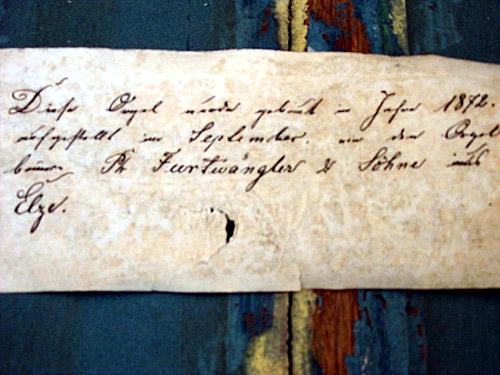 Diese Orgel wurde gebaut im Jahre 1872.
aufgestellt im September. von den Orgel
bauern Ph Furtwängler & Söhne aus
Elze.